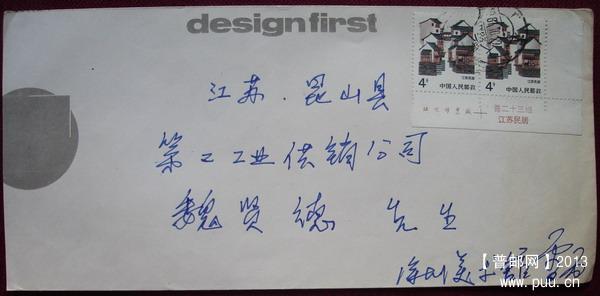 designfirst
4分 4分
中国人民邮政 中国人民邮政
江苏民居 江苏民居
普二十三组
江苏民居
江苏.昆山县
第二工业供销公司
魏贤德 先生
【普邮网】2013
www.puu.cn